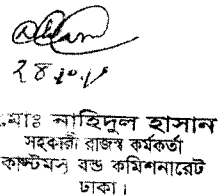 মোঃ নাহিদুল হাসান
সহকারী রাজস্ব কর্মকর্তা
কাস্টমস বন্ড কমিশনারেট
ঢাকা।